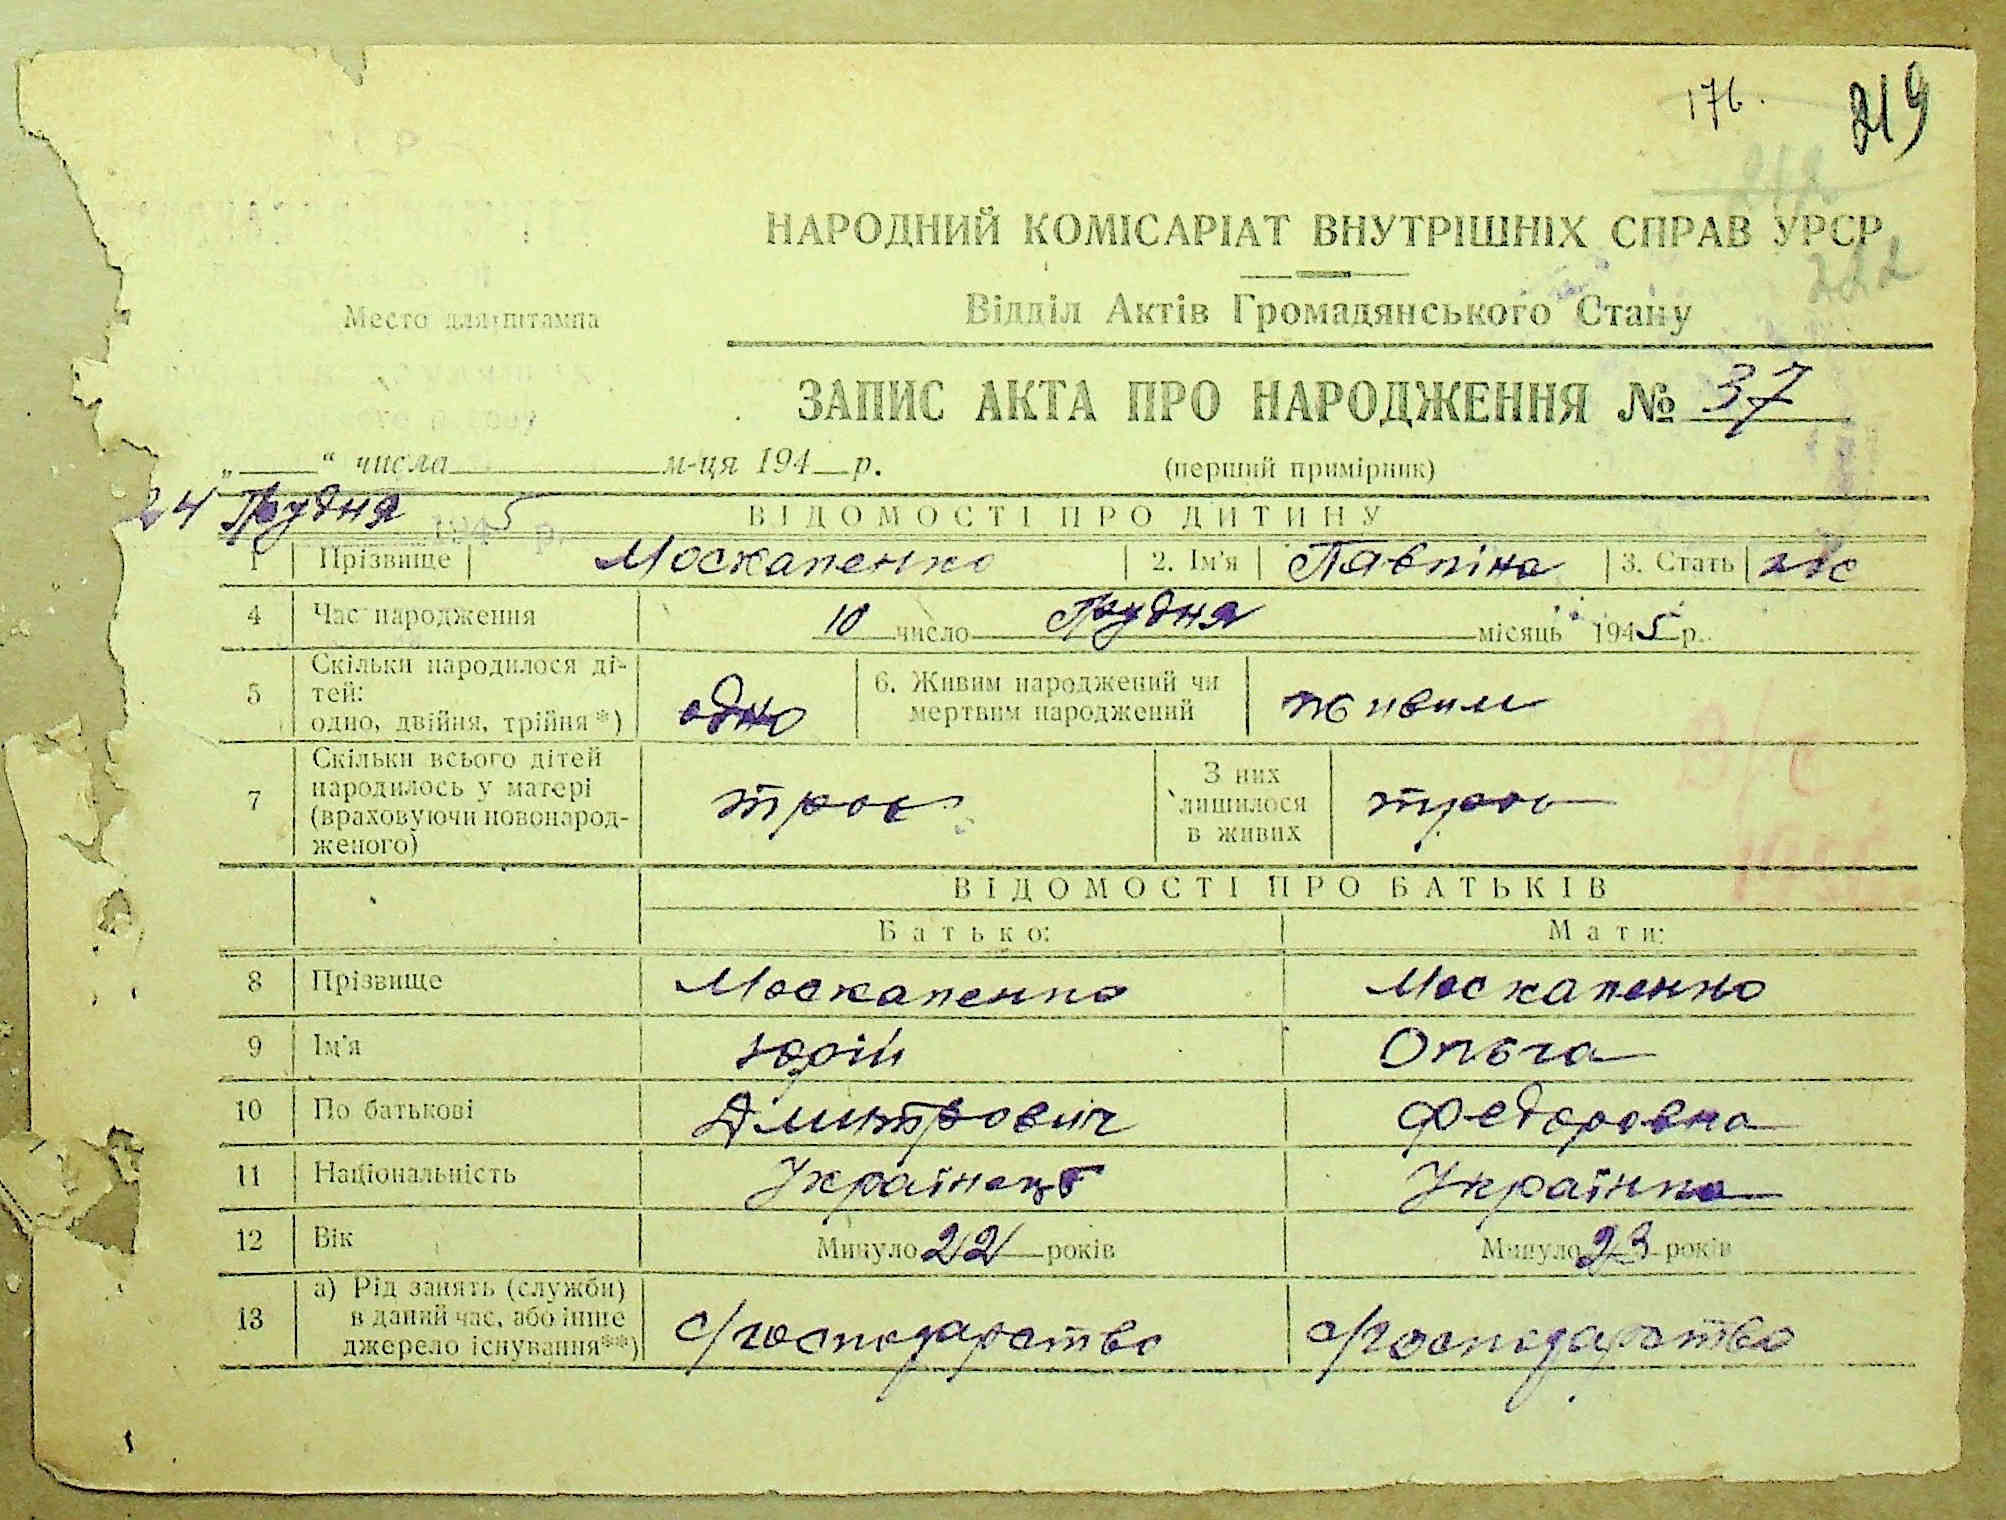 176.
219
212
222
НАРОДНИЙ КОМІСАРІАТ ВНУТРІШНІХ СПРАВ УРСР
Место для штампа
Відділ Актів Громадянського Стану
ЗАПИС АКТА ПРО НАРОДЖЕННЯ № 37
„ “ числа м-ця 194 р. (перший примірник)
24 Грудня 1945 р.
ВІДОМОСТІ ПРО ДИТИНУ
1 Прізвище Москаленко 2. Ім'я Павліна 3. Стать
4 Час народження 10 число Грудня місяць 1945 р.
5 Скільки народилося ді-
тей:
одно, двійня, трійня*) одно 6. Живим народжений чи
мертвим народжений живим
7 Скільки всього дітей
народилось у матері
(враховуючи новонарод-
женого) троє З них
лишилося
в живих троє
ВІДОМОСТІ ПРО БАТЬКІВ
Батько: Мати:
8 Прізвище Москаленко Москаленко
9 Ім'я Юрій Ольга
10 По батькові Дмитрович Федоровна
11 Національність Українець Українка
12 Вік Минуло 22 років Минуло 23 років
13 а) Рід занять (служби)
в даний час, або інше
джерело існування**) с/господарство с/господарство